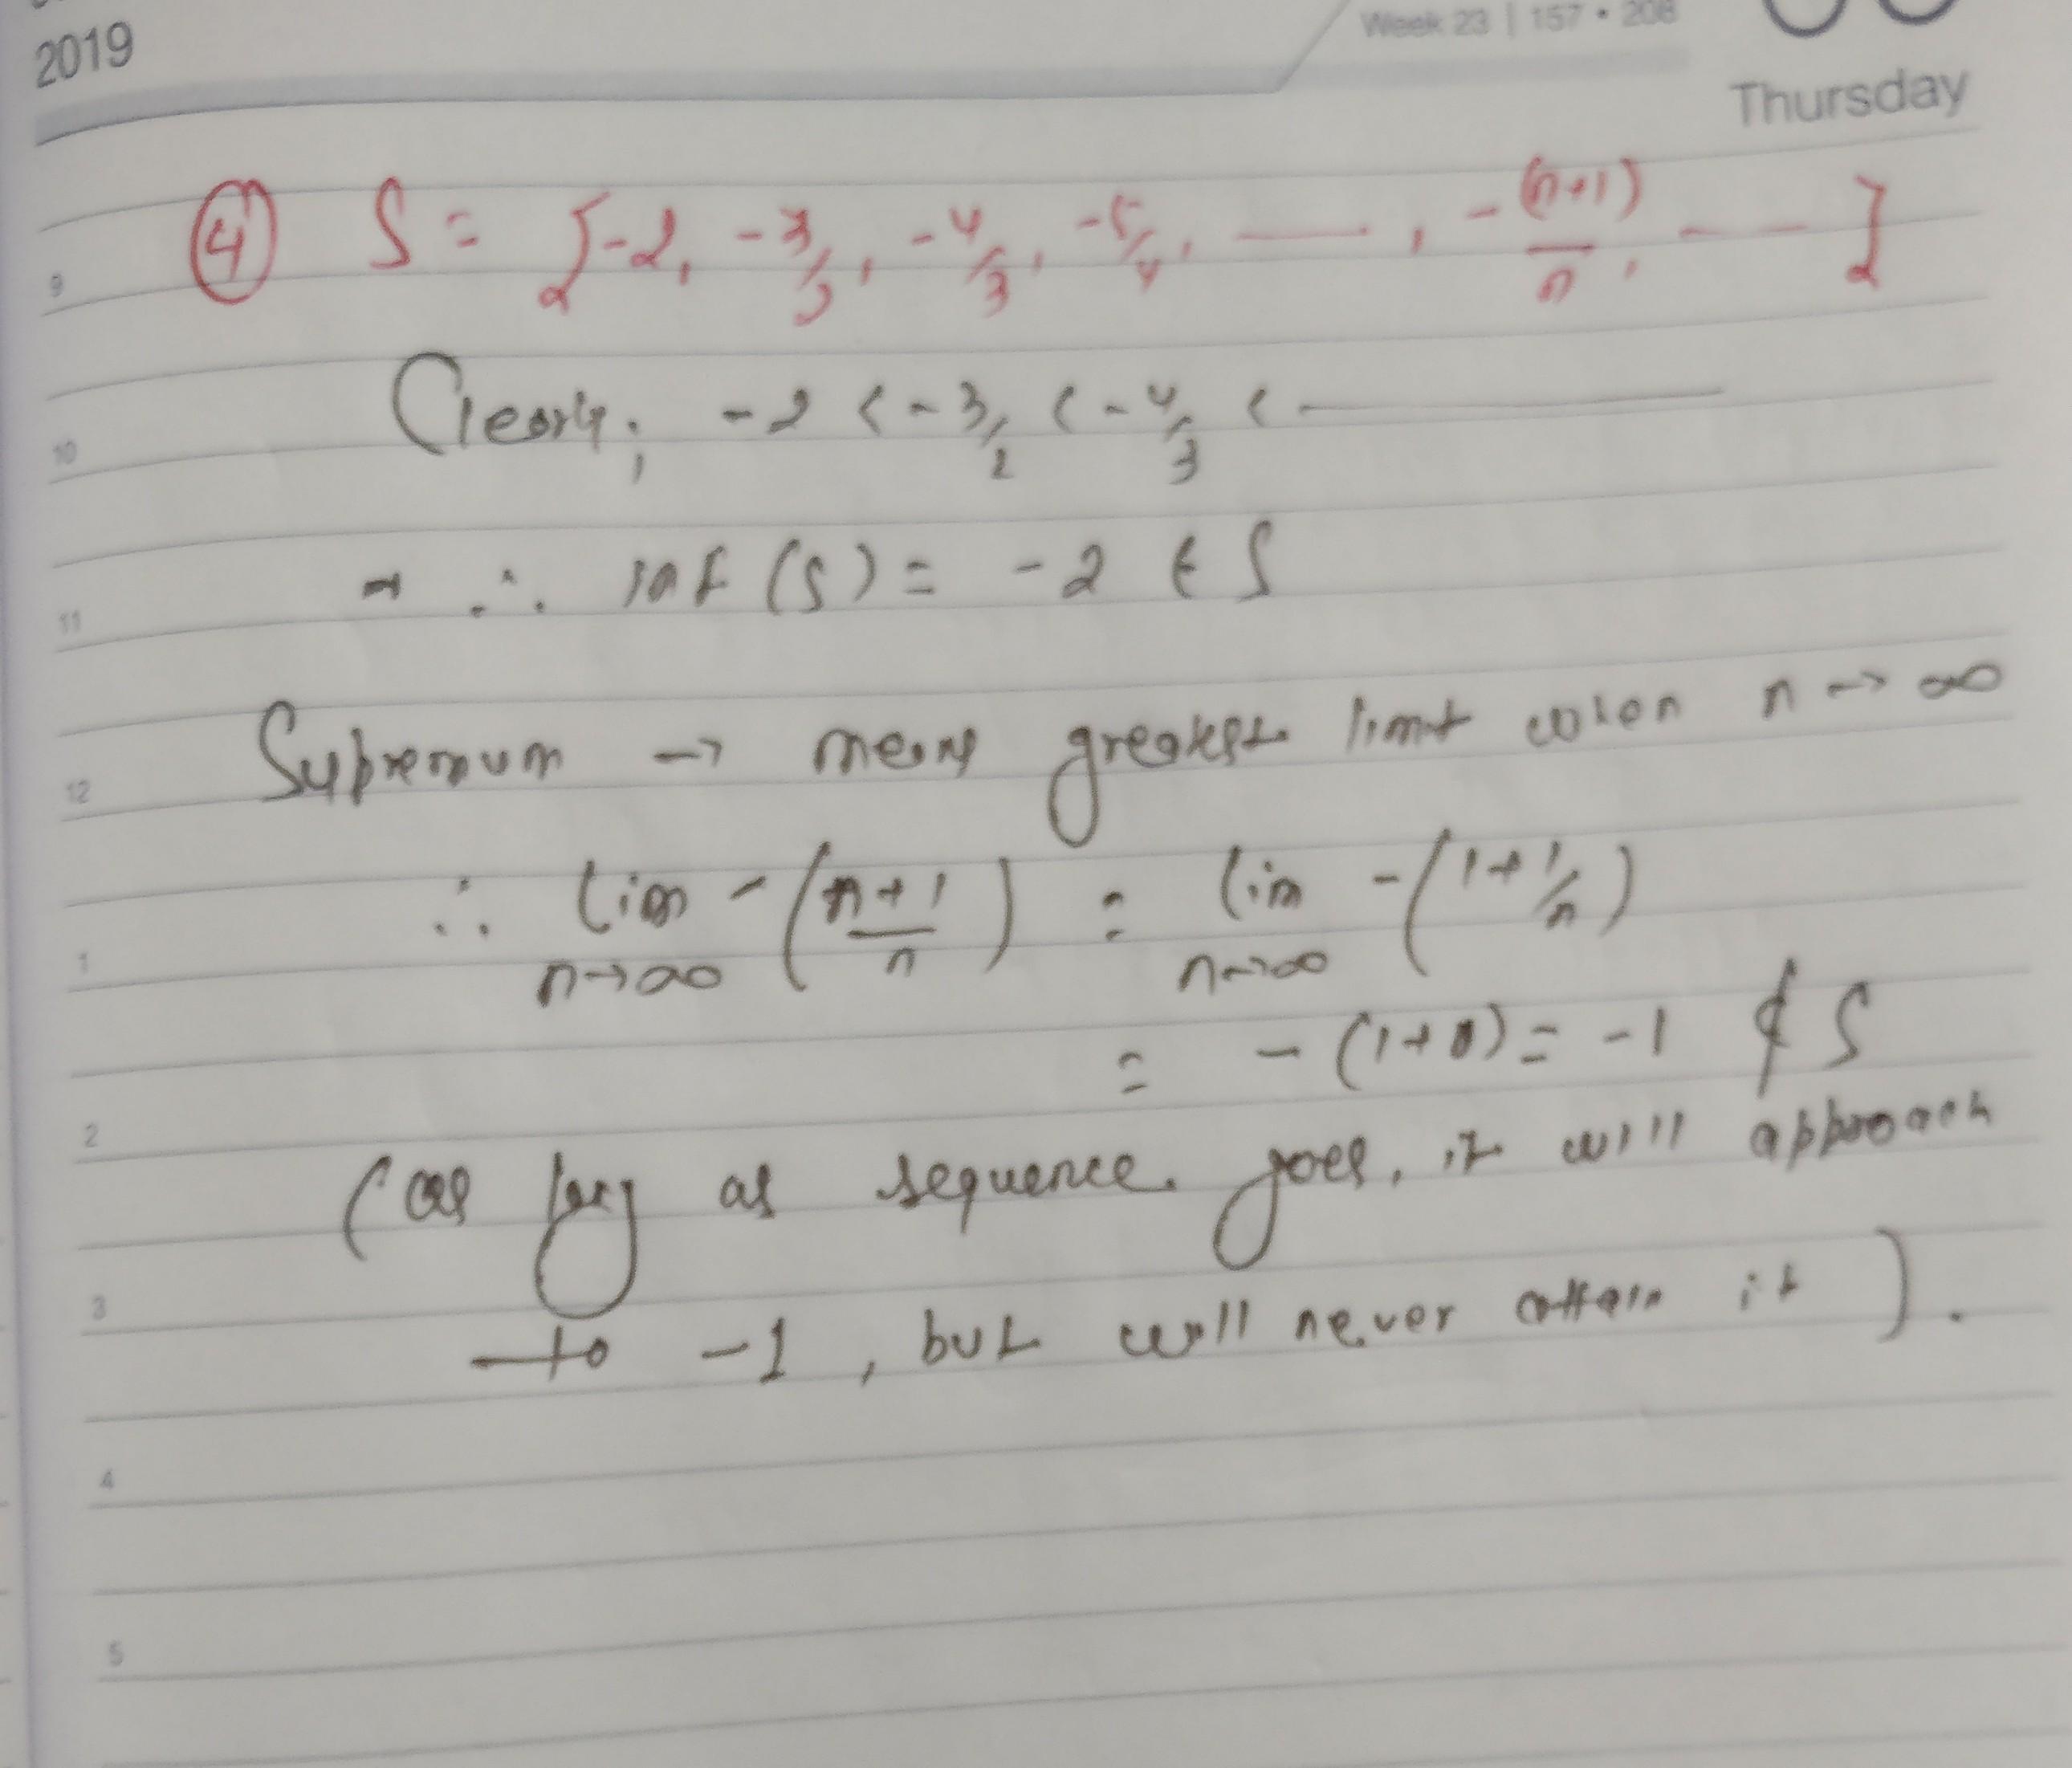 2019
Week 23 | 157 • 208
Thursday
④ S = {-2, -3/2, -4/3, -5/4, ——, -(n+1)/n, -- }
9
Clearly, -2 < -3/2 < -4/3 < ——
10
∴ inf (S) = -2 ∈ S
11
Supremum → means greatest limit when n → ∞
12
∴ lim n→∞ -(n+1/n) = lim n→∞ -(1+1/n)
1
= -(1+0) = -1 ∉ S
2
(as long as sequence goes, it will approach
3
to -1, but will never attain it).
4
5